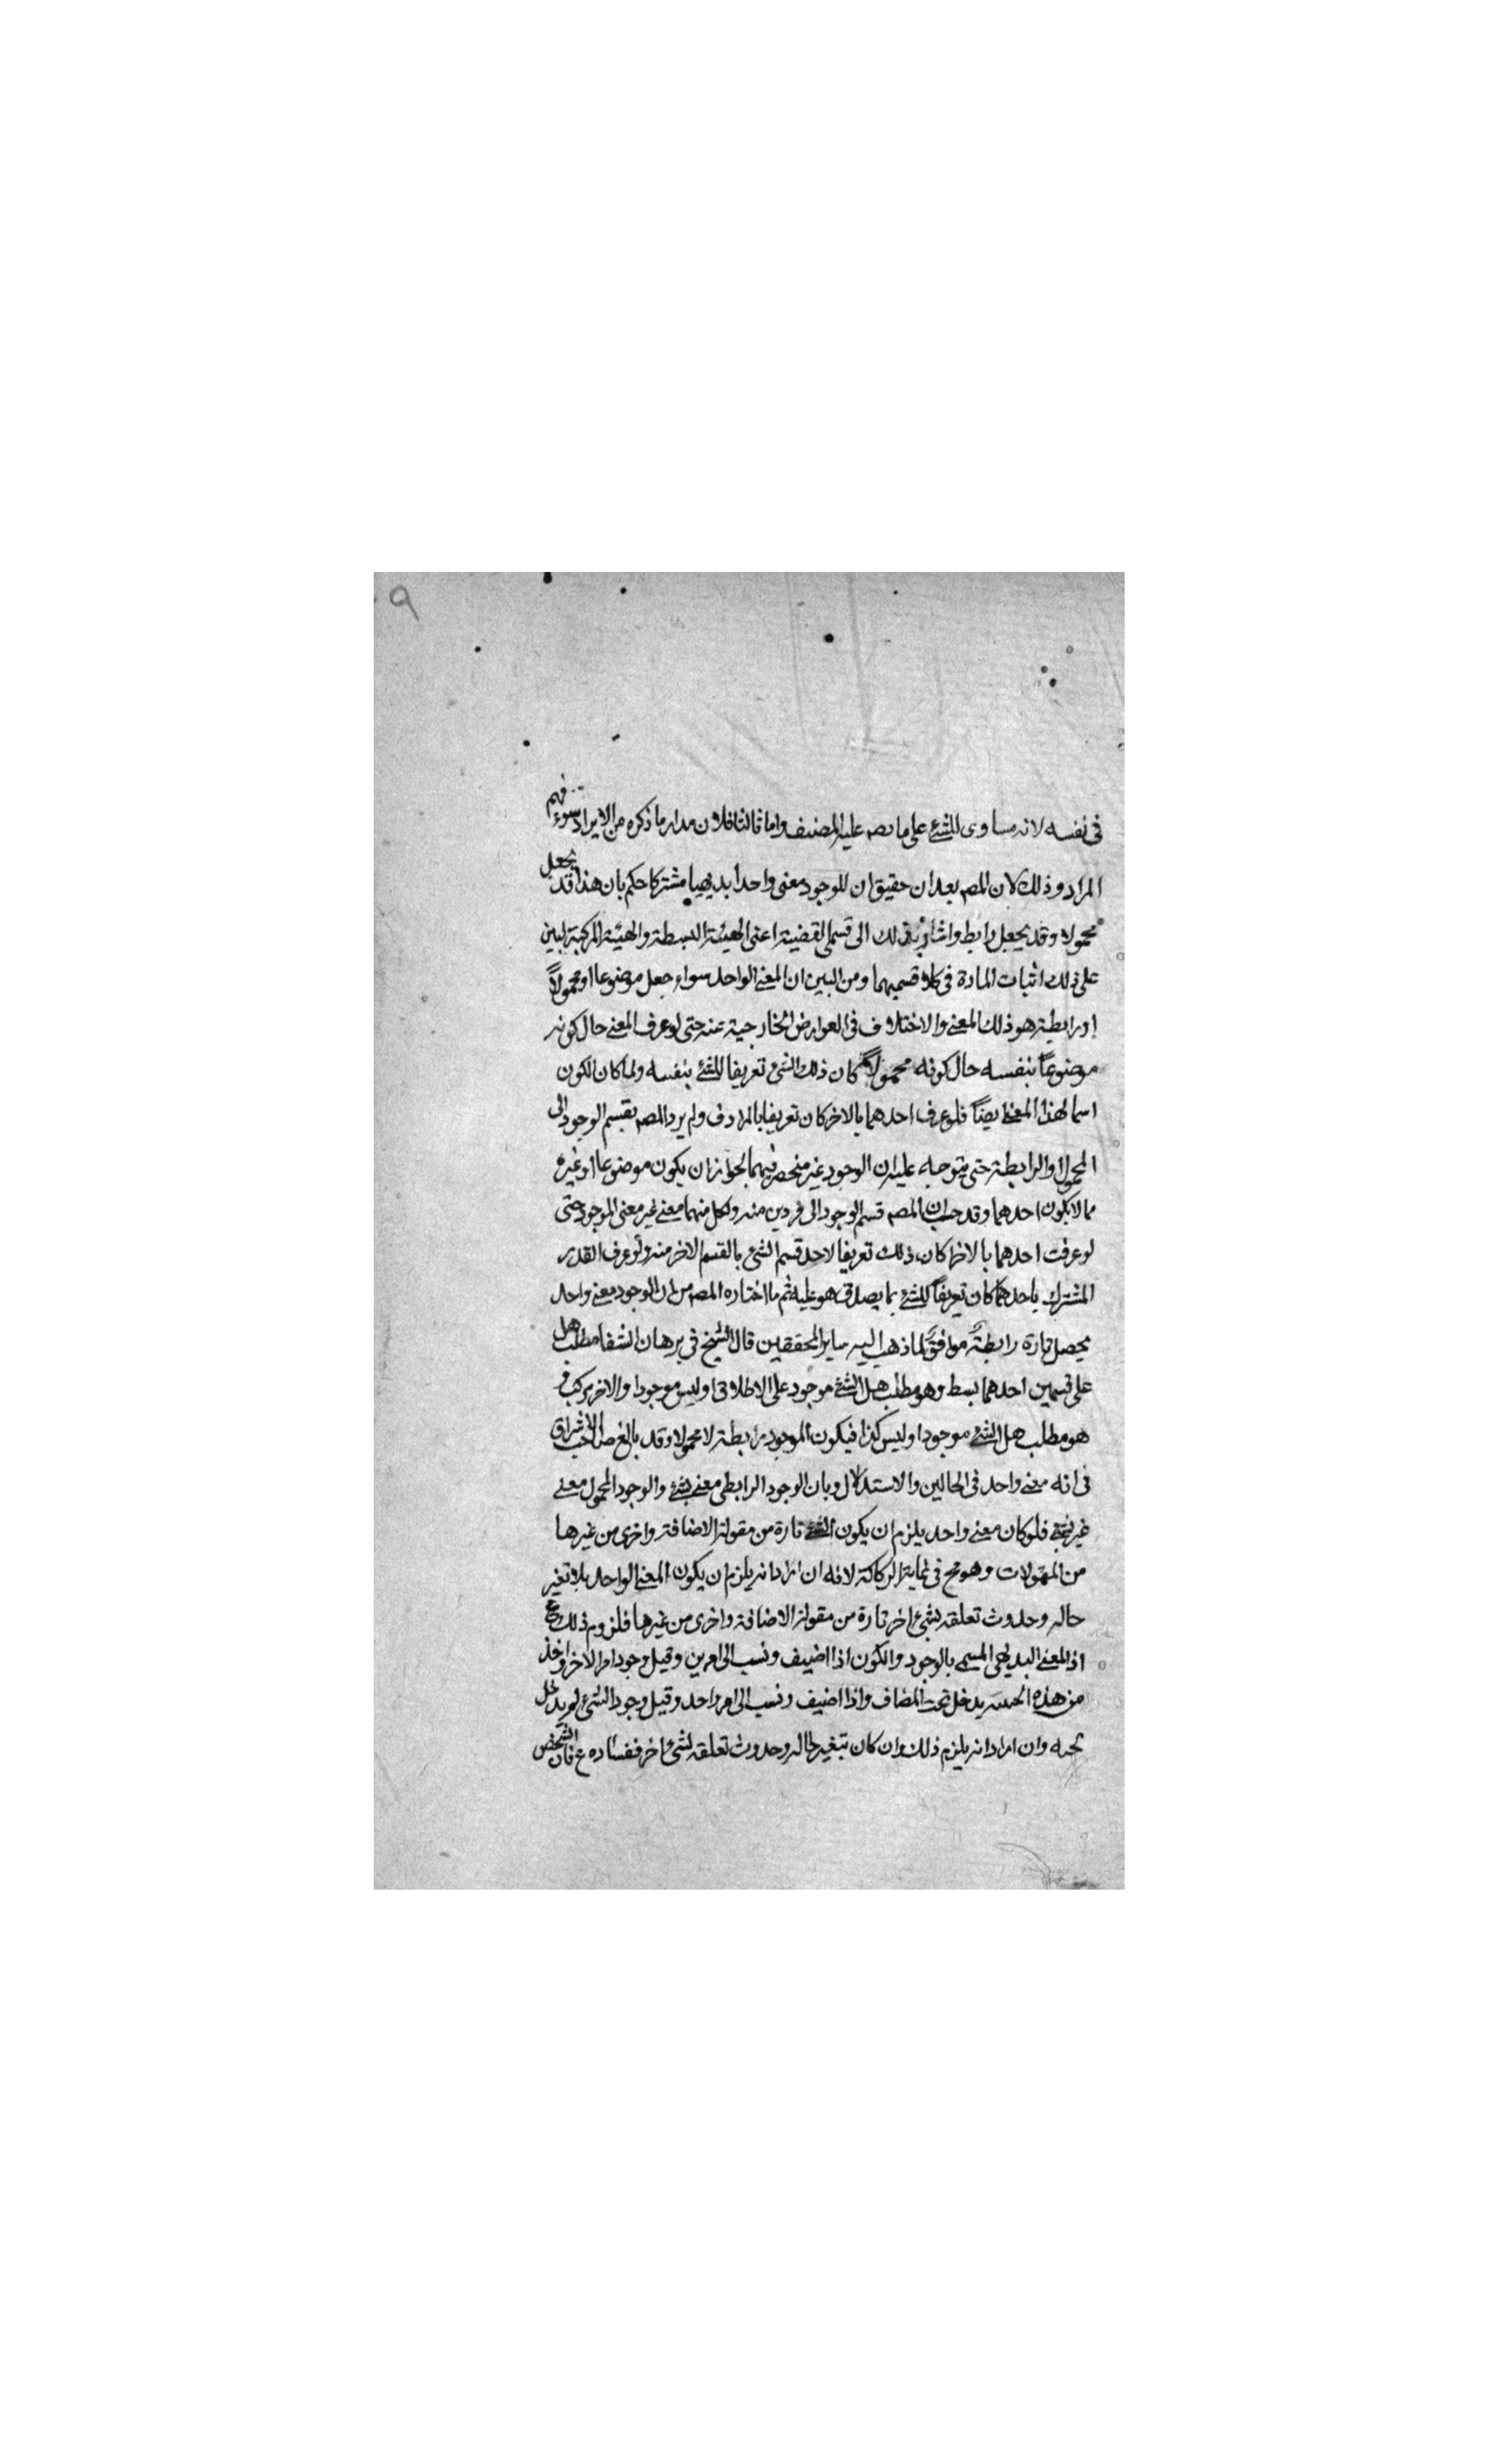 ٩
فى نفسه لانه مساوى للشئ على ما نص عليه المصنف واما ثالثا فلان مدار ما ذكره من الايراد سوء فهم
المراد وذلك لان المص بعد ان حقيق ان للوجود معنى واحدا بديهيا مشتركا حكم بان هذا قد يجعل
محمولا وقد يجعل رابط واشار بذلك الى قسمى القضية اعنى الهيئة البسطة والهيئة المركبة ليبن
على ذلك اثبات المادة فى كلا قسميهما ومن البين ان المعنى الواحد سواء جعل موضوعا او محمولاً
او رابطية هو ذلك المعنى والاختلاف فى العوارض الخارجية عنه حتى لو عرف المعنى حال كونه
موضوعاً بنفسه حال كونه محمولاً كان ذلك الشئ تعريفا للشئ بنفسه ولما كان الكون
اسما لهذا المعنى ايضاً فلو عرف احدهما بالاخر كان تعريفا بالمرادف ولم يرد المص بقسم الوجود الى
المحمول والرابطة حتى يتوجه عليه ان الوجود غير منحصر فيهما لجواز ان يكون موضوعا او غيره
مما لا يكون احدهما وقد حسب ان المص قسم الوجود الى فردين منه ولكل منهما معنى غير معنى الموجود حتى
لو عرفت احدهما بالاخر كان ذلك تعريفا لاحد قسم الشئ بالقسم الاخر منه ولو عرف القدر
المشترك باحدهما كان تعريفاً للشئ بما يصدق هو عليه ثم ما اختاره المص من ان الوجود معنى واحد
يحصل تارة رابطةً موافق لما ذهب اليه ساير المحققين قال الشيخ فى برهان الشفا مطلب هل
على قسمين احدهما بسط وهو مطلب هل الشئ موجود على الاطلاق او ليس موجودا والاخر مركب و
هو مطلب هل الشئ موجودا وليس كذا فيكون الموجود رابطة لا محمولا وقد بالغ صاحب الاشراق
فى انه معنى واحد فى الحالين والاستدلال وبان الوجود الرابطى معنى بشئ والوجود المحمول معنى
غير نسبى فلو كان معنى واحد يلزم ان يكون الشئ تارة من مقولة الاضافة واخرى من غيرها
من المقولات وهو مح فى غاية الركاكة لانه ان اراد انه يلزم ان يكون المعنى الواحد بلا تغير
حاله وحدوث تعلقه بشئ اخر تارة من مقولة الاضافة واخرى من غيرها فلزوم ذلك مم
اذ المعنى البديهى المسمى بالوجود والكون اذا اضيف ونسب الى امرين وقيل وجود امر الاخر واخذ
من هذه الحيسه يدخل تحت المضاف واذا اضيف ونسب الى امر واحد وقيل وجود الشئ لم يدخل
تحته وان اراد انه يلزم ذلك وان كان بتغير حاله وحدوث تعلقه بشئ اخر ففساده ع فان الشخص